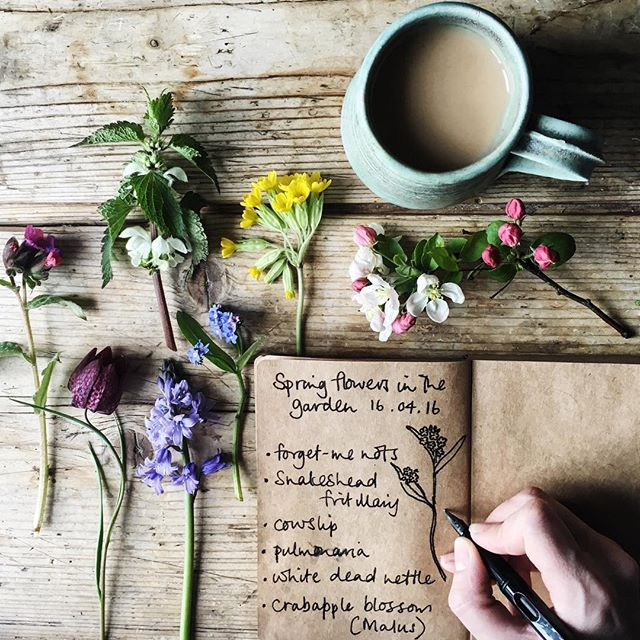 Spring flowers in the
garden 16.04.16
• forget-me nots
• Snakeshead
fritillary
• cowslip
• pulmonaria
• white dead nettle
• crabapple blossom
(Malus)